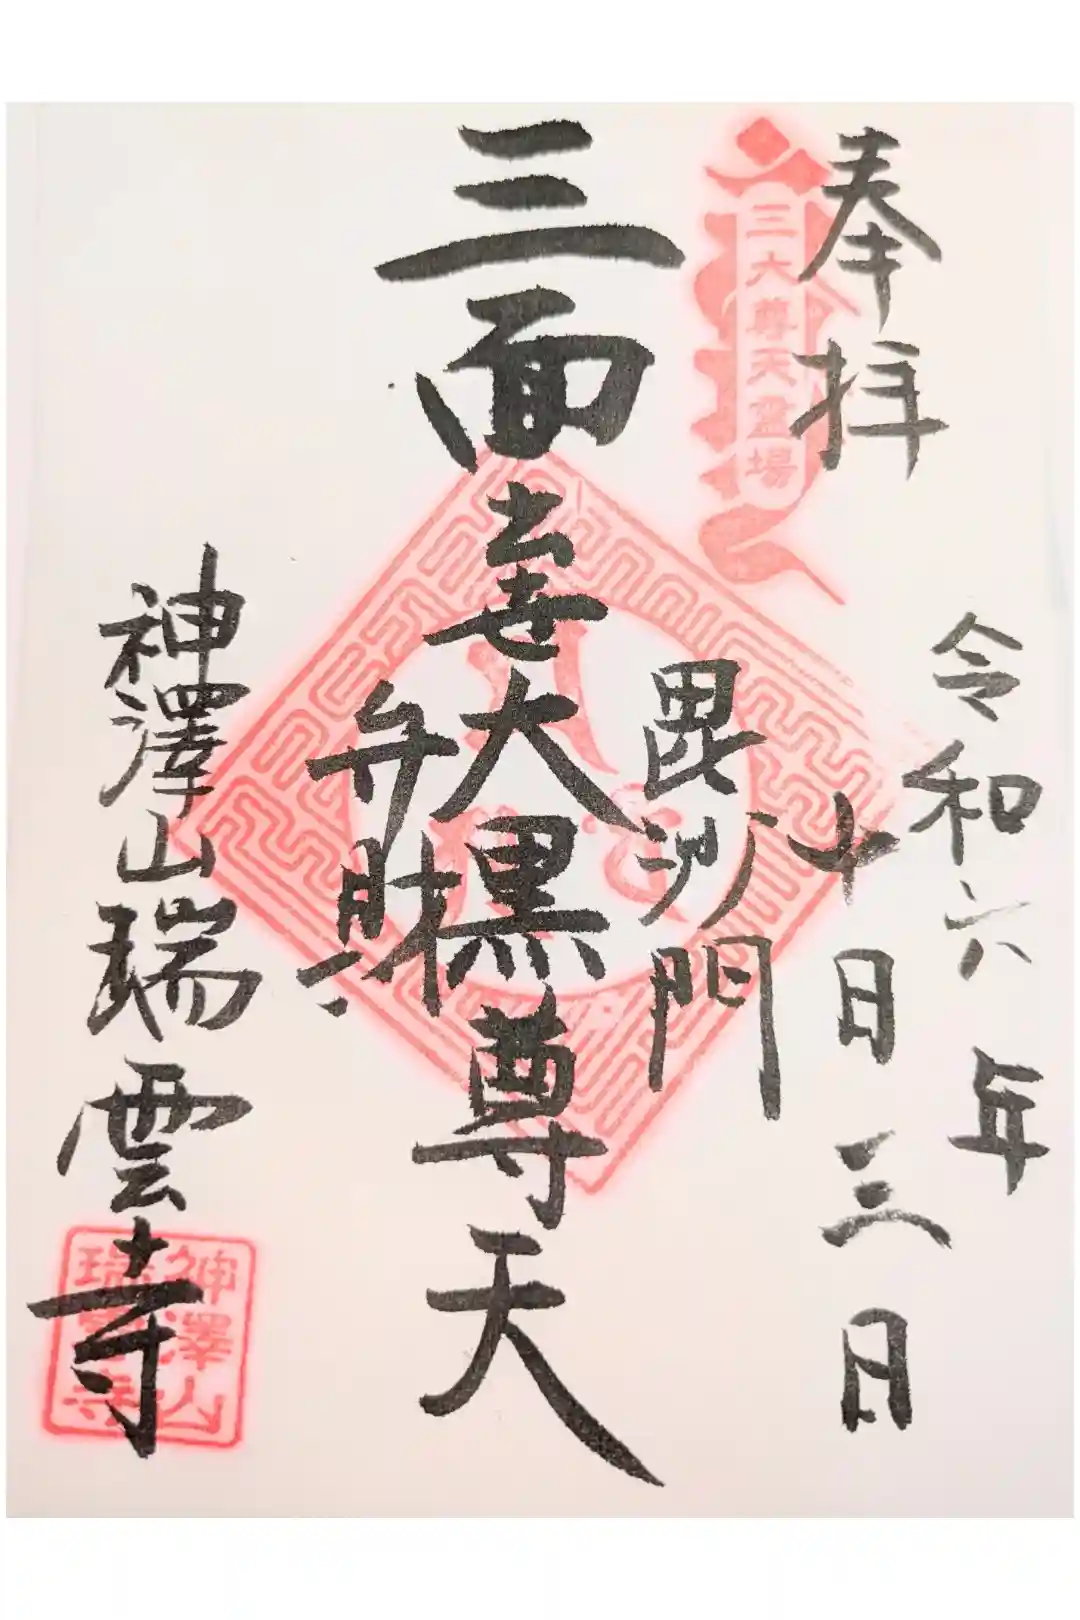 奉拝
三大尊天霊場
令和六年
十日三日
毘沙門
三面出世大黒尊天
弁財
神澤山瑞雲寺
神澤山
瑞雲寺